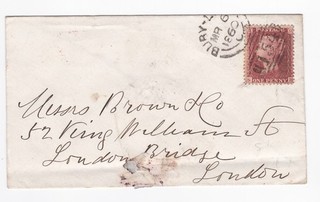 BURY
MR 6
1860
ONE PENNY
Messrs Brown & Co
52 King William St
London Bridge
London